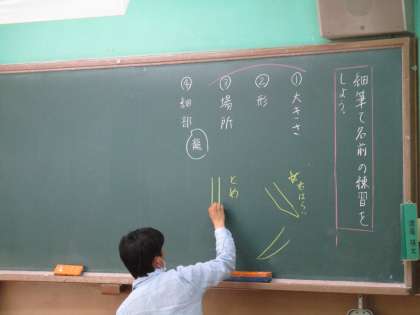 細筆で名前の練習を
しよう。
①大きさ
②形
③場所
④細部
龍
はらい
とめ